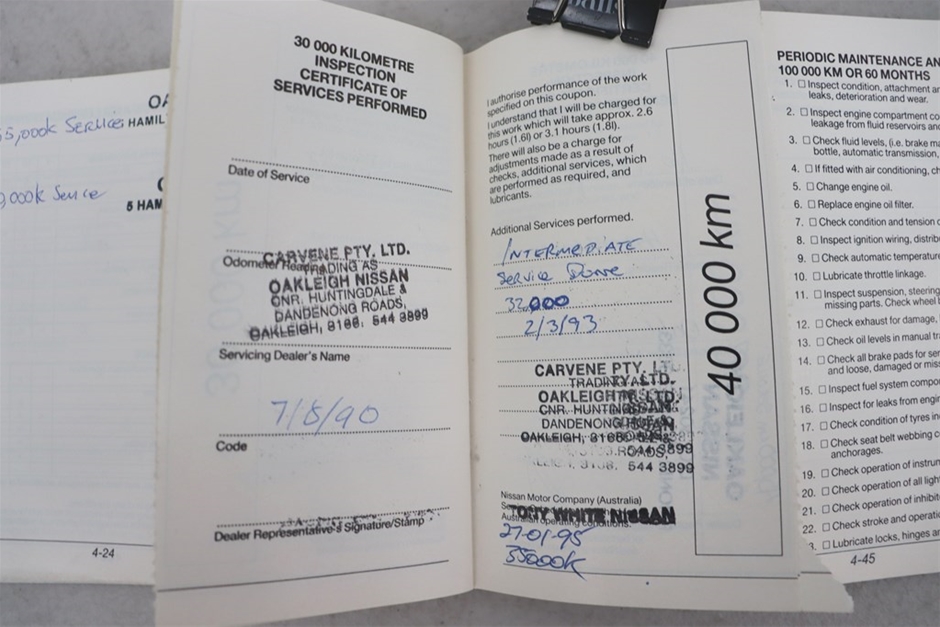 15,000k Services HAMIL
0,000k Service
5 HAM
30 000 KILOMETRE
INSPECTION
CERTIFICATE OF
SERVICES PERFORMED
Date of Service
Odometer Reading
CARVENE PTY. LTD.
TRADING AS
OAKLEIGH NISSAN
CNR. HUNTINGDALE &
DANDENONG ROADS,
OAKLEIGH, 3166. 544 3899
Servicing Dealer's Name
7/8/90
Code
Dealer Representative's Signature/Stamp
4-24
I authorise performance of the work
specified on this coupon.
I understand that I will be charged for
this work which will take approx. 2.6
hours (1.6l) or 3.1 hours (1.8l).
There will also be a charge for
adjustments made as a result of
checks, additional services, which
are performed as required, and
lubricants.
Additional Services performed.
INTERMEDIATE
Service Done
32,000
2/3/93
CARVENE PTY. LTD.
TRADING
OAKLEIGH
CNR. HUNTING
DANDENONG
OAKLEIGH, 3166
ROADS,
544 3899
Nissan Motor Company (Australia)
TONY WHITE NISSAN
Australian operating conditions.
27-01-95
35000K
40 000 km
PERIODIC MAINTENANCE AN
100 000 KM OR 60 MONTHS
1. ☐ Inspect condition, attachment an
leaks, deterioration and wear.
2. ☐ Inspect engine compartment co
leakage from fluid reservoirs and
3. ☐ Check fluid levels, (i.e. brake ma
bottle, automatic transmission,
4. ☐ If fitted with air conditioning, ch
5. ☐ Change engine oil.
6. ☐ Replace engine oil filter.
7. ☐ Check condition and tension o
8. ☐ Inspect ignition wiring, distrib
9. ☐ Check automatic temperature
10. ☐ Lubricate throttle linkage.
11. ☐ Inspect suspension, steering
missing parts. Check wheel
12. ☐ Check exhaust for damage,
13. ☐ Check oil levels in manual tr
14. ☐ Check all brake pads for ser
and loose, damaged or miss
15. ☐ Inspect fuel system compo
16. ☐ Inspect for leaks from engin
17. ☐ Check condition of tyres in
18. ☐ Check seat belt webbing c
anchorages.
19. ☐ Check operation of instrum
20. ☐ Check operation of all ligh
21. ☐ Check operation of inhibit
22. ☐ Check stroke and operati
3. ☐ Lubricate locks, hinges an
4-45